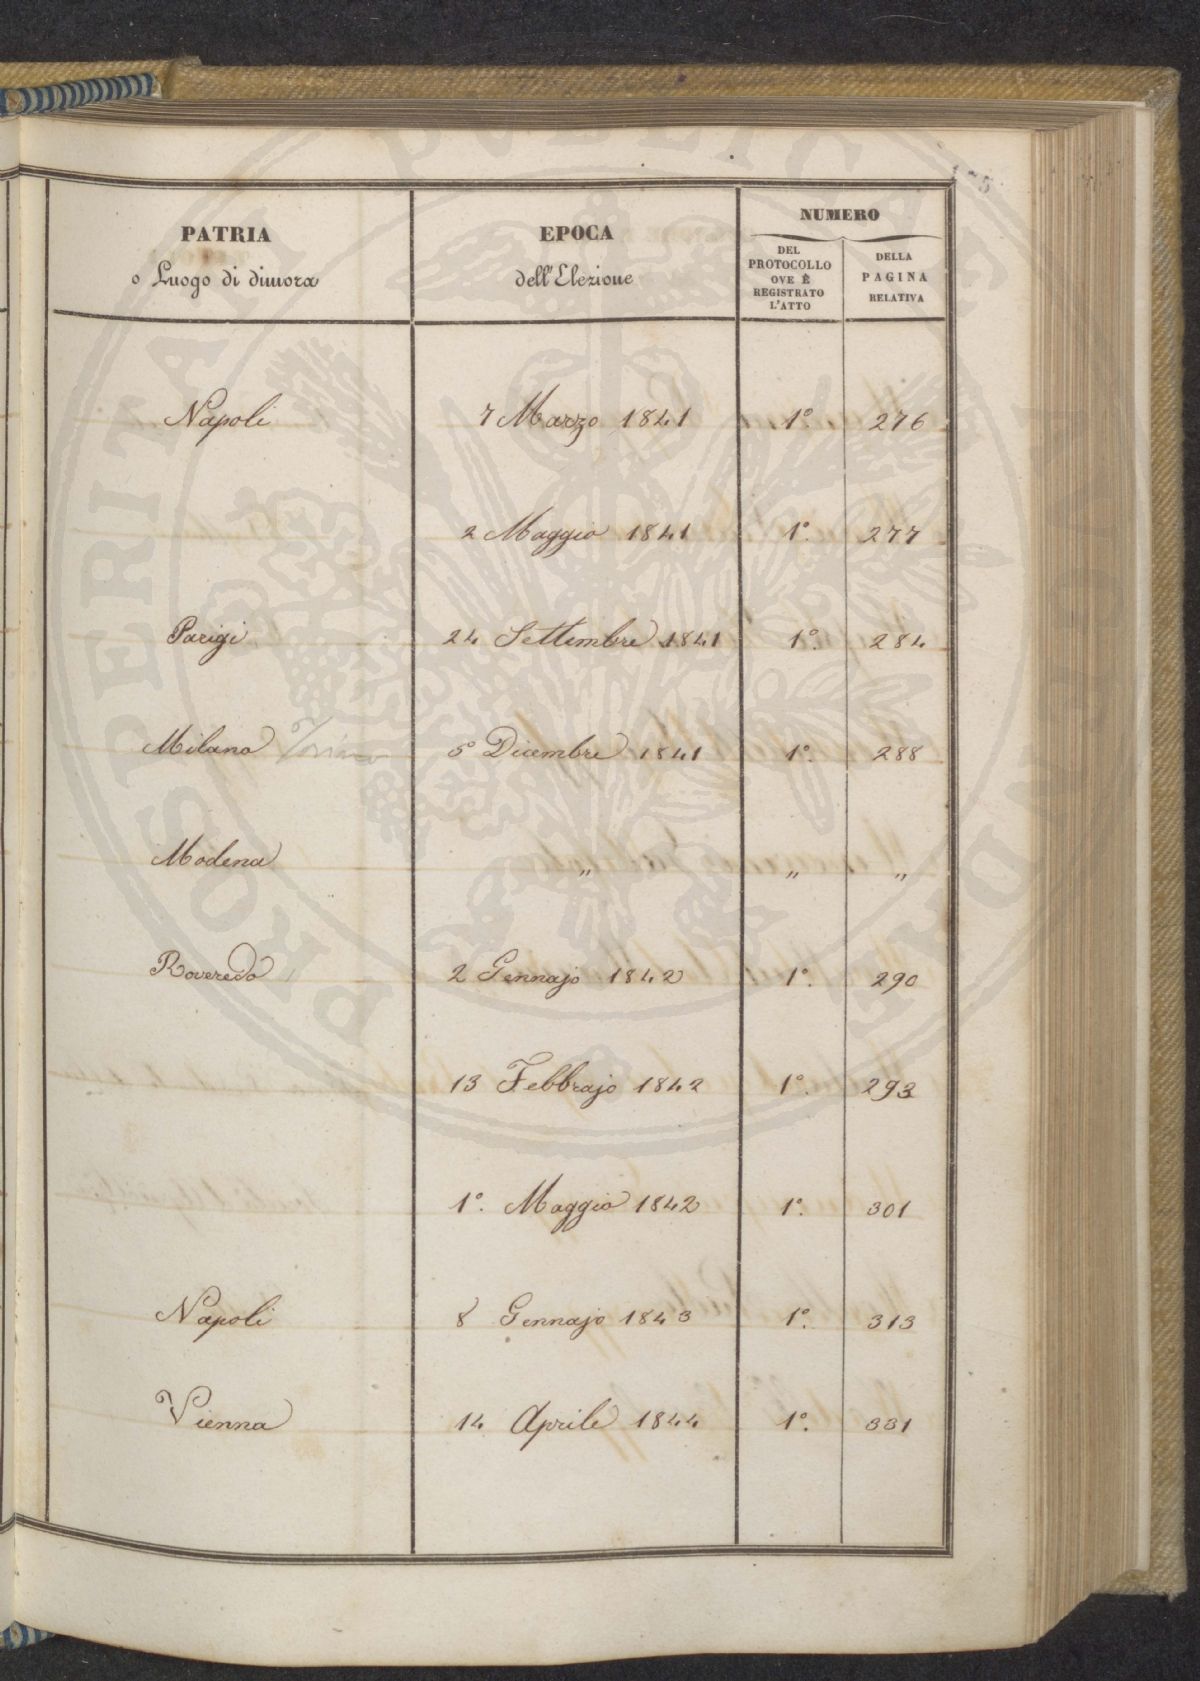 175
PATRIA
o Luogo di dimora
EPOCA
dell'Elezione
NUMERO
DEL
PROTOCOLLO
OVE È
REGISTRATO
L'ATTO
DELLA
PAGINA
RELATIVA
Napoli 7 Marzo 1841 1º. 276
2 Maggio 1841 1º. 277
Parigi 24 Settembre 1841 1º. 284
Milano Torino 5º Dicembre 1841 1º. 288
Modena " " "
Roveredo 2 Gennajo 1842 1º. 290
13 Febbrajo 1842 1º. 293
1º. Maggio 1842 1º. 301
Napoli 8 Gennajo 1843 1º. 313
Vienna 14 Aprile 1844 1º. 331